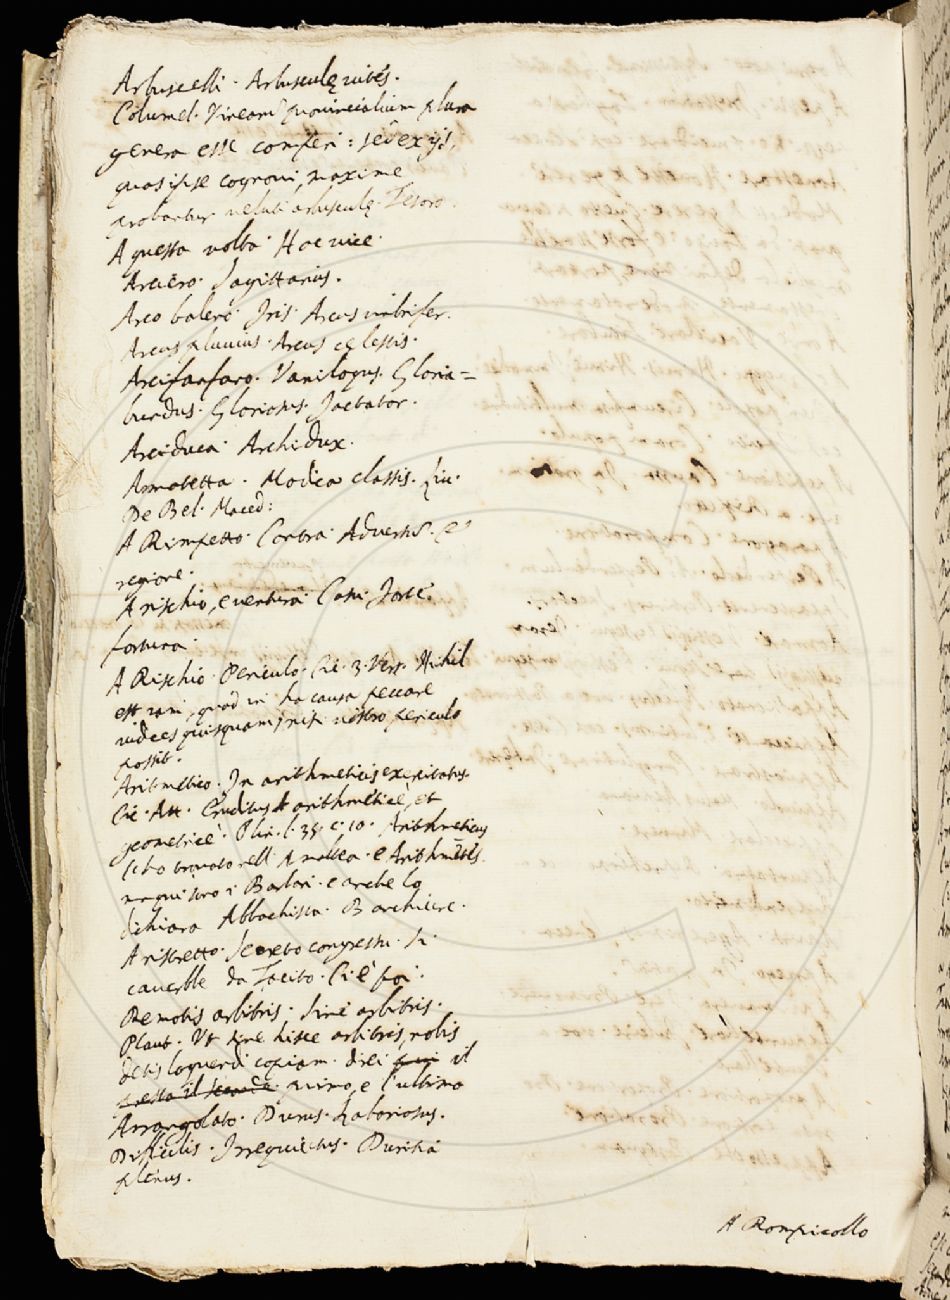 Arbuscelli. Arbusculę vites.
Columel. Vinearū provincialium plura
genera esse comperi: sed ex ijs,
quas ipse cognovi, maxime
probantur veluti arbusculę. Tesoro.
A questa volta. Hac vice.
Arciero. Sagittarius.
Arco baleno. Iris. Arcus imbrifer.
Arcus pluvius. Arcus cęlestis.
Arcifanfaro. Vanilogus. Gloria=
bundus. Gloriosus. Jactator.
Arciduca. Archidux.
Armatetta. Modica classis. Liv.
De Bel. Maced:
A Rimpetto. Contra. Adversus. è
regione.
A rischio, e ventura. Casu. Forte
fortuna.
A Rischio. Periculo. Cic. 3. Verr. Nihil
est iam, quod in hac causa peccare
iudices quisquam, nisi nostro periculo
possit.
Aritmetico. In arithmeticis exercitatus.
Cic. Att. Eruditus arithmeticè, et
geometricè. Plin. l. 35. c. 10. Arithmeticus
si ho trovato nell' Amaltea. e Arithmētēs
ma qui sino i Barbari. e anche lo
dichiara Abbachista. Barchiere.
A ristretto. Secreto congressu. Si
caverebbe da Tacito. Ci è poi.
Remotis arbitris. Sine arbitris.
Plaut. Ut sine hisce arbitris, nobis
detis loquendi copiam. direi il
presto il secondo primo, e l'ultimo
Arrangolato. Durus. Laboriosus.
Difficilis. Irrequietus. Duritia
plenus.
A Rompicollo